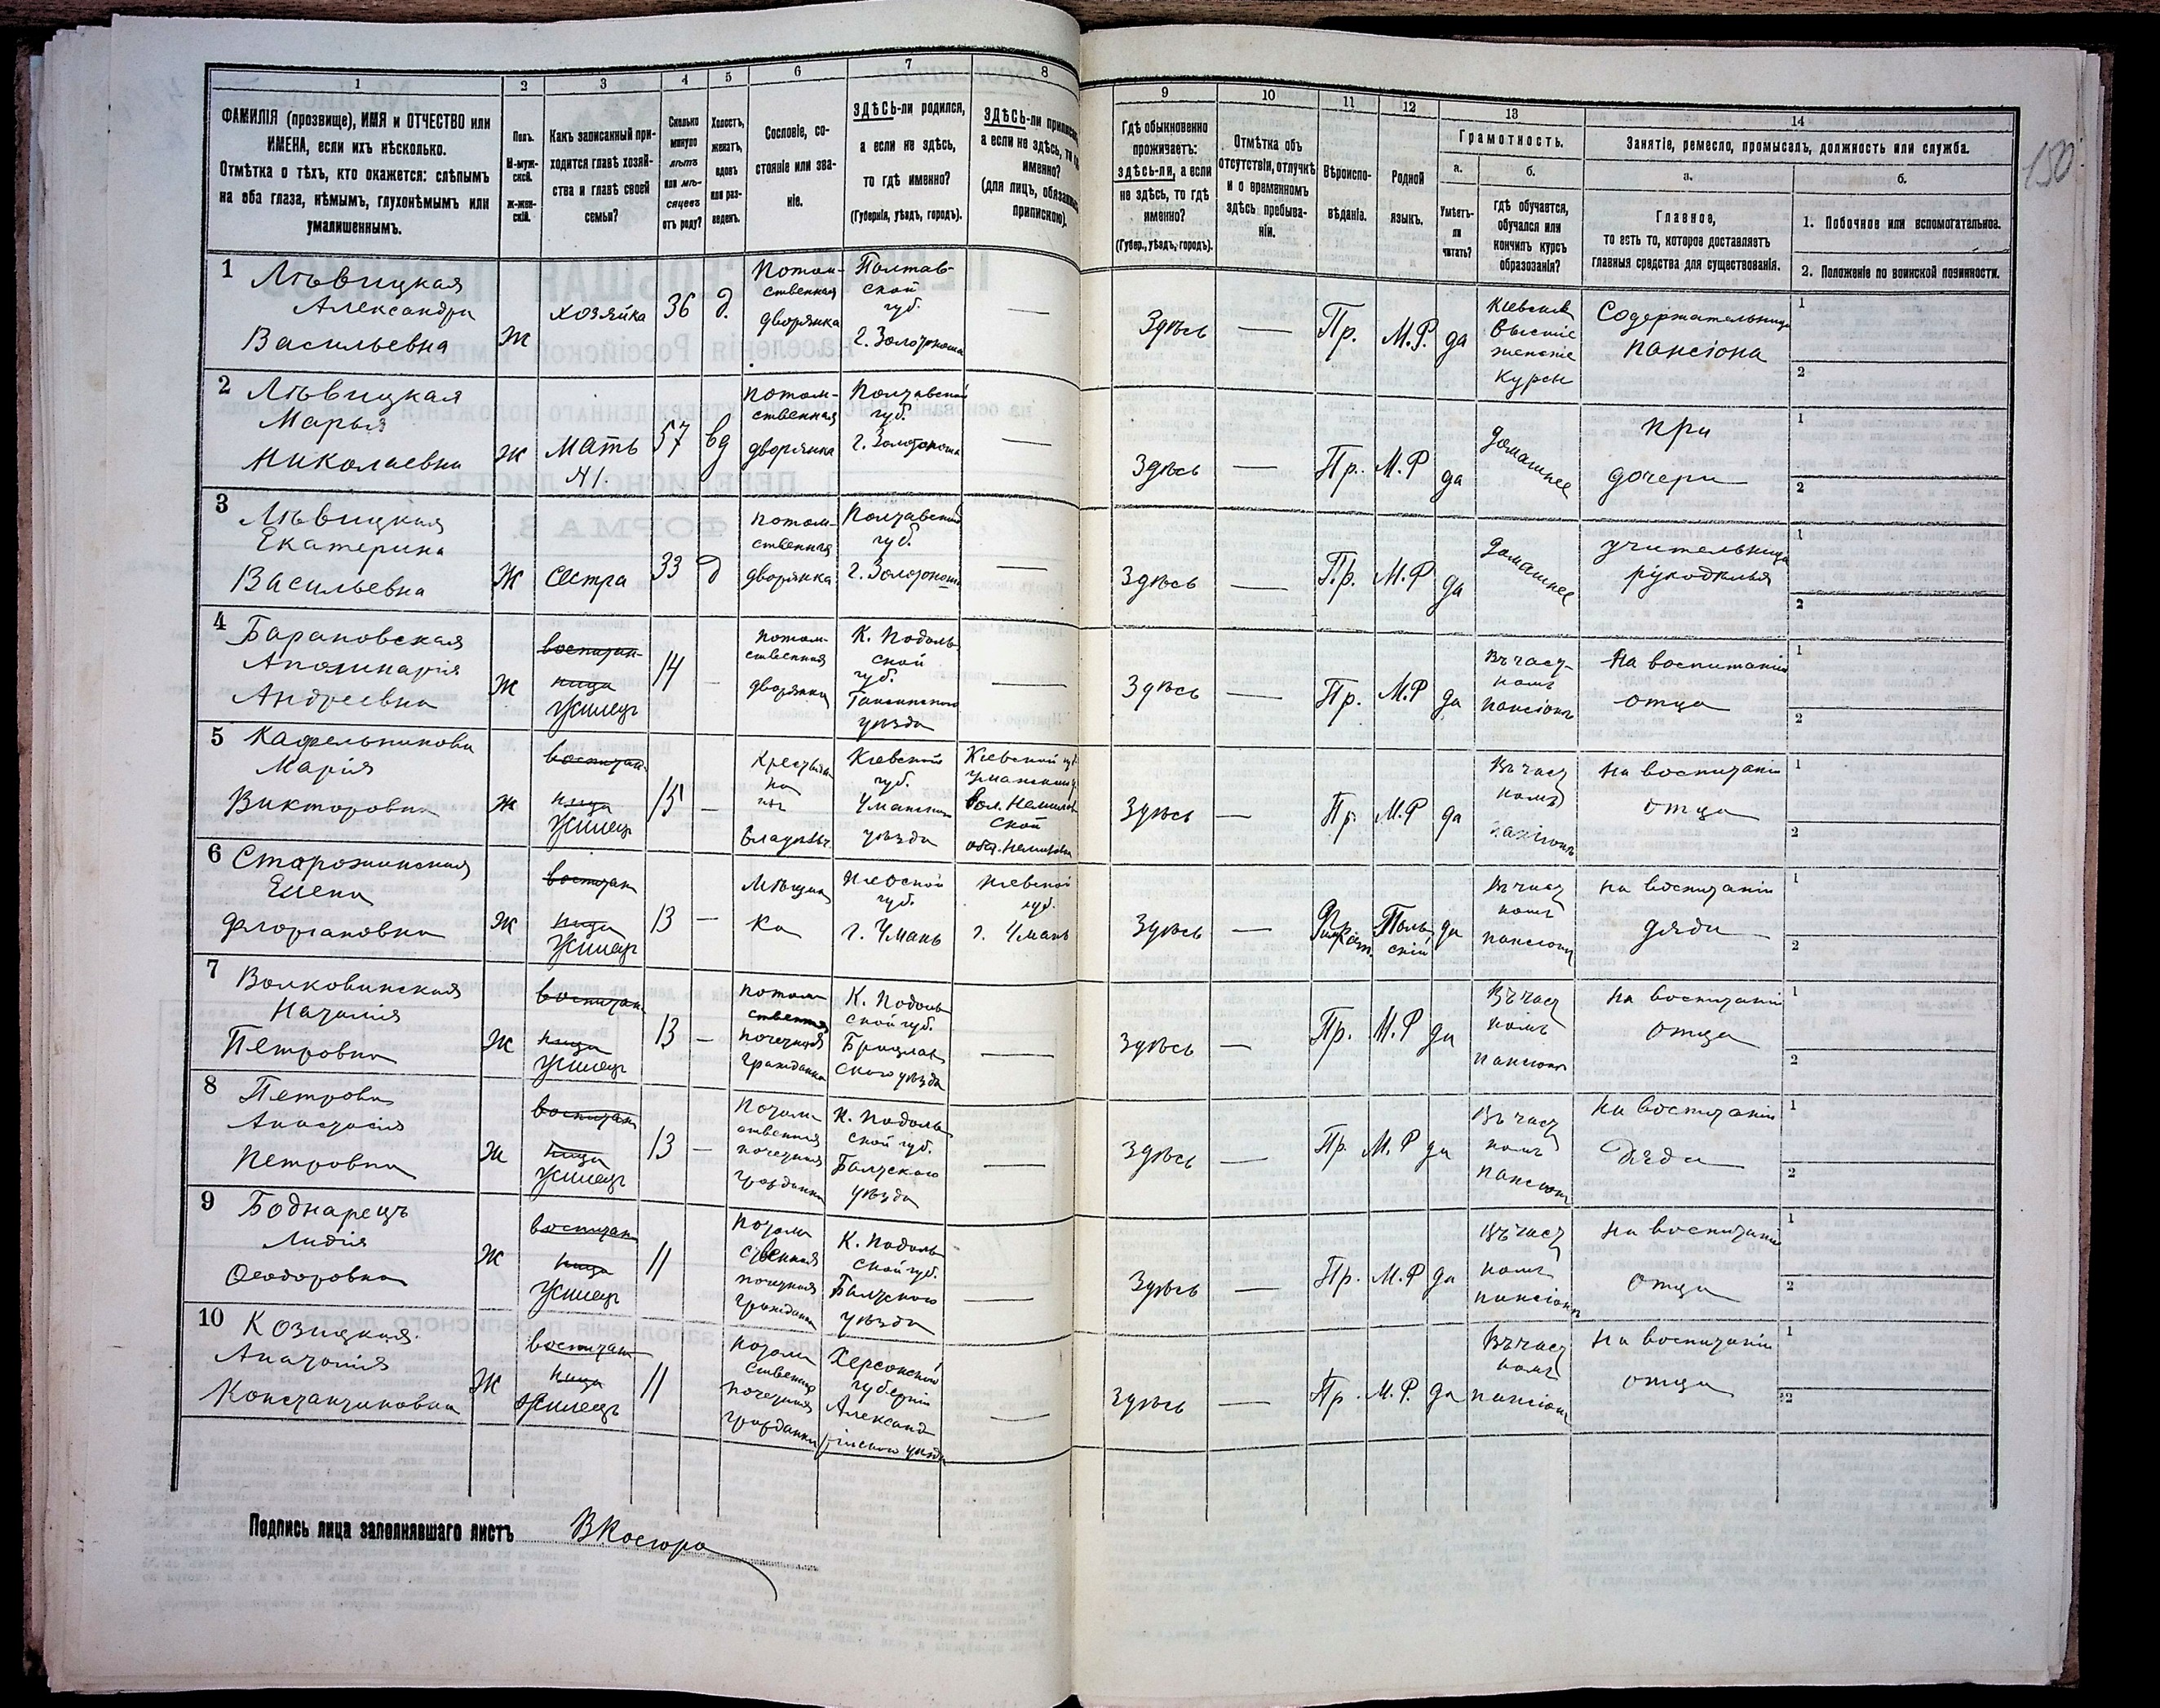 1 2 3 4 5 6 7 8
ФАМИЛІЯ (прозвище), ИМЯ и ОТЧЕСТВО или
ИМЕНА, если ихъ нѣсколько.
Отмѣтка о тѣхъ, кто окажется: слѣпымъ
на оба глаза, нѣмымъ, глухонѣмымъ или
умалишеннымъ.
Полъ.
М-муж-
ской.
Ж-жен-
скій.
Какъ записанный при-
ходится главѣ хозяй-
ства и главѣ своей
семьи?
Сколько
минуло
лѣтъ
или мѣ-
сяцевъ
отъ роду?
Холостъ,
женатъ,
вдовъ
или раз-
веденъ.
Сословіе, со-
стояніе или зва-
ніе.
ЗДѢСЬ-ли родился,
а если не здѣсь,
то гдѣ именно?
(Губернія, уѣздъ, городъ).
ЗДѢСЬ-ли
а если не здѣсь,
именно?
(для лицъ,
припискою).
9 10 11 12 13 14
Гдѣ обыкновенно
проживаетъ:
здѣсь-ли, а если
не здѣсь, то гдѣ
именно?
(Губер., уѣздъ, городъ).
Отмѣтка объ
отсутствіи, отлучкѣ
и о временномъ
здѣсь пребыва-
ніи.
Вѣроиспо-
вѣданіе.
Родной
языкъ.
Грамотность.
а.
Умѣетъ-
ли
читать?
б.
гдѣ обучается,
обучался или
кончилъ курсъ
образованія?
Занятіе, ремесло, промыселъ, должность или служба.
а.
Главное,
то есть то, которое доставляетъ
главныя средства для существованія.
б.
1. Побочное или вспомогательное.
2. Положеніе по воинской повинности.
150
1 Лѣвицкая
Александра
Васильевна
Ж
хозяйка
36
д.
Потом-
ственная
дворянка
Полтав-
ской
губ.
г. Золотоноша
—
Здѣсь
—
Пр.
М.Р.
да
Кіевскіе
Высшіе
женскіе
курсы
Содержательница
пансіона
1
2
2 Лѣвицкая
Марья
Николаевна
Ж
Мать
№1.
57
вд
потом-
ственная
дворянка
Полтавской
губ.
г. Золотоноша
—
Здѣсь
—
Пр.
М.Р
да
домашнее
при
дочери
1
2
3 Лѣвицкая
Екатерина
Васильевна
Ж
Сестра
33
д
потом-
ственная
дворянка
Полтавской
губ.
г. Золотоноша
—
Здѣсь
—
Пр.
М.Р
да
домашнее
учительница
рукодѣлья
1
2
4 Барановская
Аполинарія
Андреевна
Ж
воспитан-
ница
Жилец
14
—
потом-
ственная
дворянка
К. Подоль-
ской
губ.
уѣзда
—
Здѣсь
—
Пр.
М.Р
да
Въ част-
номъ
пансіонѣ
На воспитаніи
отца
1
2
5 Кафельникова
Марія
Викторовна
Ж
воспитан-
ница
Жилец
15
—
Крестьян-
ка
Кіевской
губ.
Уманскаго
уѣзда
Кіевской губ.
Уманскаго у.
Здѣсь
—
Пр.
М.Р
да
Въ част
номъ
пансіонѣ
на воспитаніи
отца
1
2
6
Елена
Флоріановна
Ж
воспитан
ница
Жилец
13
—
Мѣщан
ка
Кіевской
губ.
г. Умань
Кіевской
губ.
г. Умань
Здѣсь
—
Поль
скій
да
Въ част
номъ
пансіонѣ
на воспитаніи
дяди
1
2
7 Волковинская
Наталія
Петровна
Ж
воспитан
ница
Жилец
13
—
потом
ственная
почетная
гражданка
К. Подоль
ской губ.
Брацлав
скаго уѣзда
—
Здѣсь
—
Пр.
М.Р
да
Въ част
номъ
пансіонѣ
на воспитаніи
отца
1
2
8 Петрова
Анастасія
Петровна
Ж
воспитан
ница
Жилец
13
—
Потом
ственная
почетная
гражданка
К. Подоль
ской губ.
Балтскаго
уѣзда
—
Здѣсь
—
Пр.
М.Р
да
Въ част
номъ
пансіонѣ
на воспитаніи
дяди
1
2
9 Боднарецъ
Лидія
Ѳеодоровна
Ж
воспитан
ница
Жилец
11
потом
ственная
почетная
гражданка
К. Подоль
ской губ.
Балтскаго
уѣзда
—
Здѣсь
—
Пр.
М.Р
да
Въ част
номъ
пансіонѣ
на воспитаніи
отца
1
2
10 Козицкая
Анатолія
Константиновна
Ж
воспитан
ница
Жилецъ
11
потом
ственная
почетная
гражданка
Херсонской
губерніи
Александ
рійскаго уѣзда
—
Здѣсь
—
Пр.
М.Р.
да
Въ част
номъ
пансіонѣ
на воспитаніи
отца
1
2
Подпись лица заполнявшаго листъ